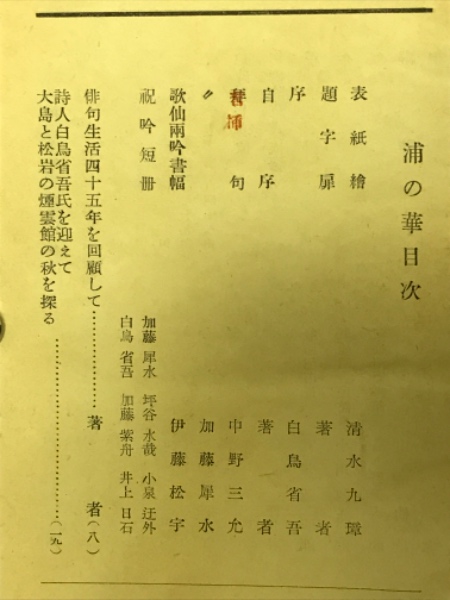 浦の華目次
表紙繪 清水九璋
題字扉 著者
序 白鳥省吾
自序 著者
句 中野三允
〃 加藤犀水
歌仙兩吟書幅 伊藤松宇
祝吟短冊 加藤犀水 坪谷水哉 小泉迂外
白鳥省吾 加藤紫舟 井上日石
俳句生活四十五年を回顧して……………著者(八)
詩人白鳥省吾氏を迎えて
大島と松岩の煙雲館の秋を探る……………(一九)